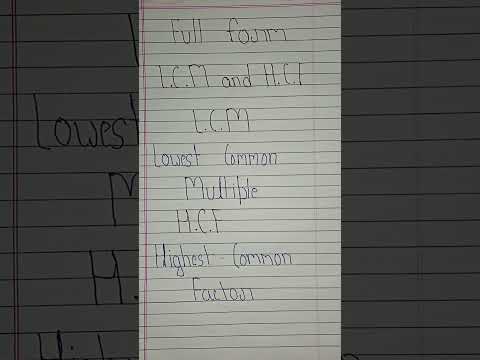 Full form
L.C.M and H.C.F
L.C.M
Lowest Common
Multiple
H.C.F
Highest Common
Factor